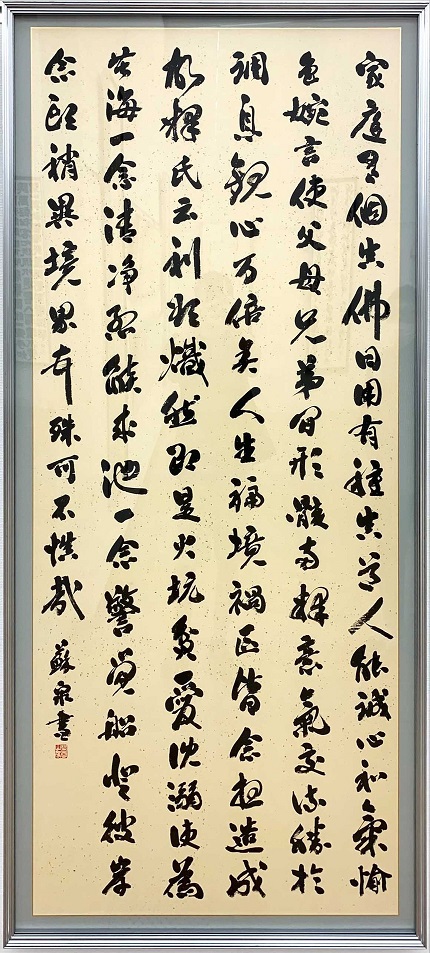 家庭有個真佛日用有種真道人能誠心和氣愉
色婉言使父母兄弟間形骸兩釋意氣交流勝於
調息觀心万倍矣人生福境禍區皆念想造成
故釋氏云利欲熾然即是火坑貪愛沈溺便為
苦海一念清净烈焰成池一念警覺船登彼岸
念頭稍異境界頓殊可不慎哉 蘇泉書